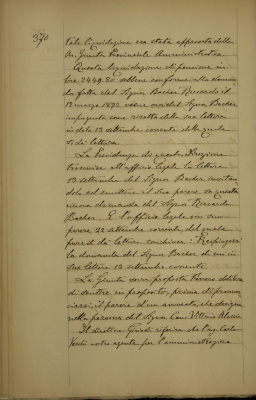 370
Tale liquidazione era stata approvata dalla
On. Giunta Provinciale Amministrativa.
Questa liquidazione di pensione in
Lire 2449.20 sebbene conforme alla domanda
fatta dal Signor Bacher Riccardo il
12 marzo 1892 viene ora dal Signor Bacher
impugnata come risulta dalla sua lettera
in data 13 settembre corrente della quale
si dà lettura.
La Presidenza di questa Direzione
trasmise all'ufficio legale la lettera
13 settembre del Signor Bacher invitan
dolo ad emettere il suo parere su questa
nuova domanda del Signor Riccardo
Bacher. E l'ufficio legale in suo
parere 22 settembre corrente del quale
pure si dà lettura conchiuse: Respingersi
la domanda del Signor Bacher di cui in
sua lettera 13 settembre corrente.
La Giunta sopra proposta
di sentire in proposito, prima di pronun
ciarsi, il parere d'un avvocato, che
nella persona del Signor Cav. Vittorio
Il direttore riferisce che l'Ing. Carlo
Verdi nostro agente per l'amministrazione